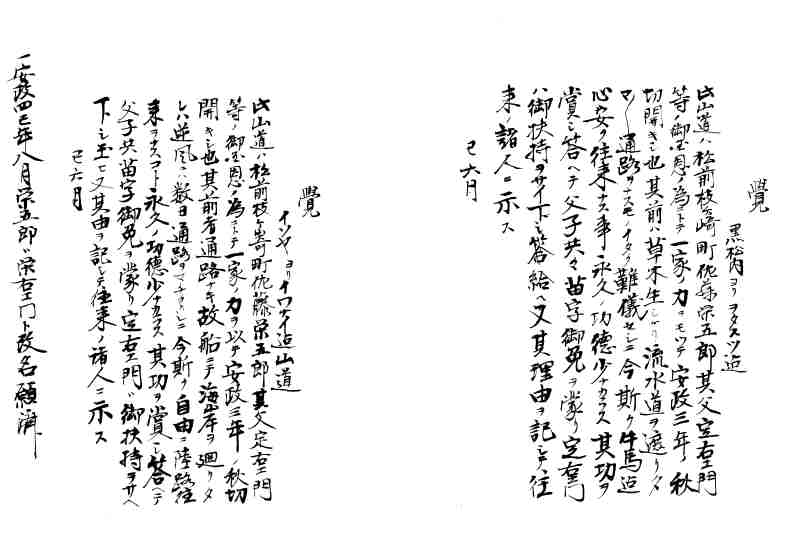 覺
黒松内ヨリヲタスツ迄
此山道ハ松前枝ヶ崎町佐藤栄五郎其父定右エ門
等ノ御国恩ノ為ニトテ一家ノ力ヲモツテ安政三年ノ秋
切開キシ也其前ハ草木生シケリ流水道ヲ遮リタ
マ〱通路ヲナスモノイタク難儀セシニ今斯ク牛馬迄
心安ク往来ナス事永久ノ功徳少ナカラス其功ヲ
賞シ答ヘテ父子共々苗字御免ヲ蒙リ定右エ門
ハ御扶持ヲサイ下シ給ヘ又其理由ヲ記シテ往
来ノ諸人ニ示ス
巳六月
覺
イソヤヨリイワナイ迄山道
此山道ハ松前枝ヶ崎町佐藤栄五郎其父定右エ門
等ノ御国恩ノ為ニトテ一家ノ力ヲ以テ安政三年ノ秋切
開キシ也其前者通路ナキ故船ニテ海岸ヲ廻リタ
レハ逆風ニハ数日通路ヲ今斯ク自由ニ陸路往
来ヲナスコト永久ノ功徳少ナカラス其功ヲ賞シ答ヘテ
父子共苗字御免ヲ蒙リ定右エ門ハ御扶持ヲサヘ
下シ玉ヒ又其由ヲ記シテ往来ノ諸人ニ示ス
巳六月
一安政四巳年八月栄五郎ハ栄右エ門ト改名願済